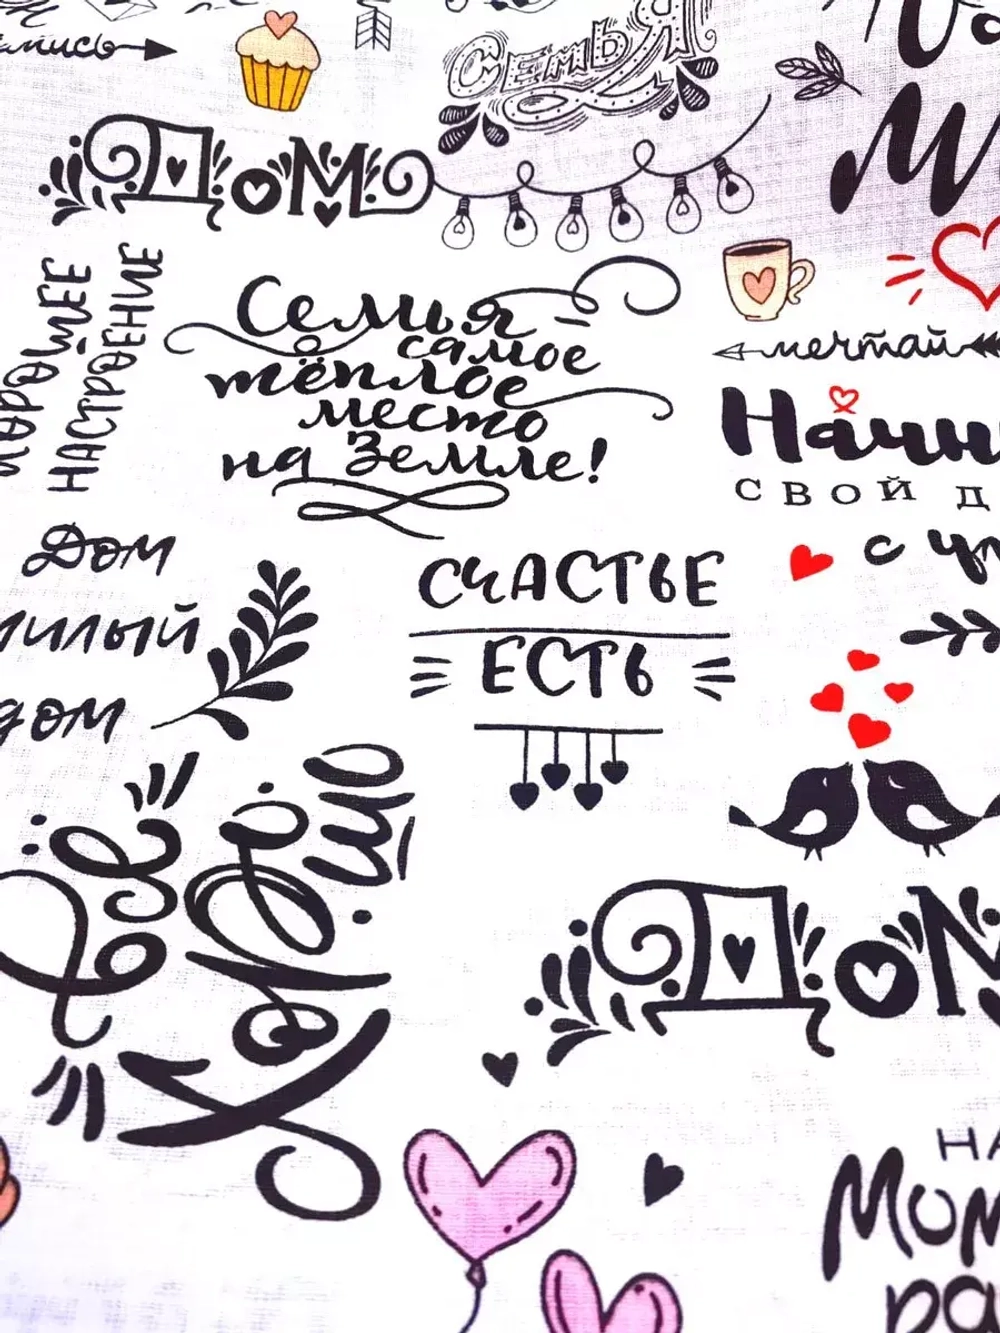 СемьЯ
Дом
ХОРОШЕЕ
НАСТРОЕНИЕ
Семья -
самое
тёплое
место
на Земле!
мечтай
СВОЙ
Дом
милый
дом
СЧАСТЬЕ
ЕСТЬ
Всё
хорошо
Дом